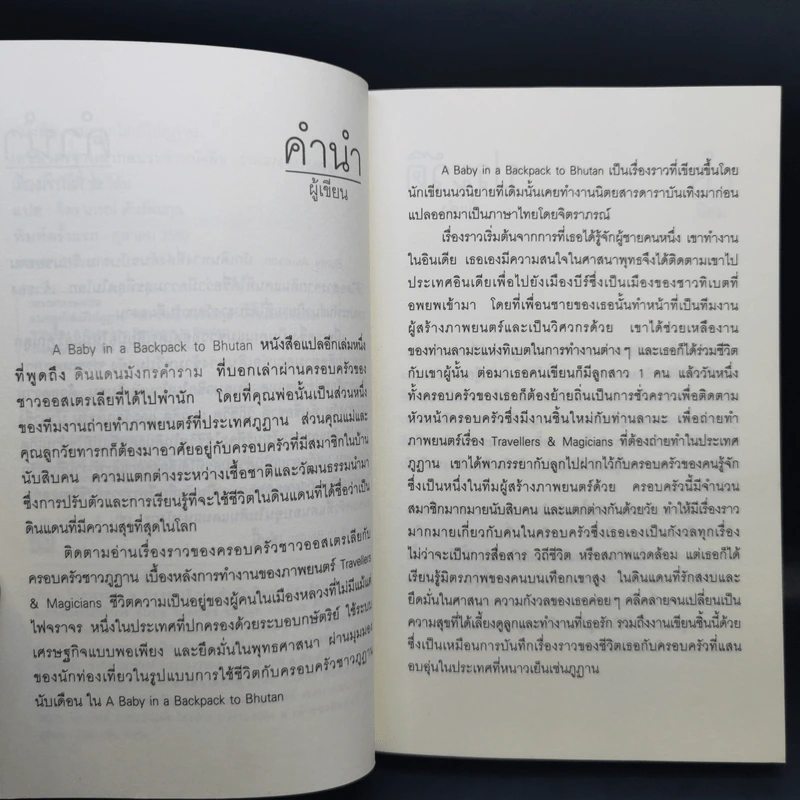 คำนำ
ผู้เขียน
A Baby in a Backpack to Bhutan หนังสือแปลอีกเล่มหนึ่ง
ที่พูดถึง ดินแดนมังกรคำราม ที่บอกเล่าผ่านครอบครัวของ
ชาวออสเตรเลียที่ได้ไปพำนัก โดยที่คุณพ่อนั้นเป็นส่วนหนึ่ง
ของทีมงานถ่ายทำภาพยนตร์ที่ประเทศภูฏาน ส่วนคุณแม่และ
คุณลูกวัยทารกก็ต้องมาอาศัยอยู่กับครอบครัวที่มีสมาชิกในบ้าน
นับสิบคน ความแตกต่างระหว่างเชื้อชาติและวัฒนธรรมนำมา
ซึ่งการปรับตัวและการเรียนรู้ที่จะใช้ชีวิตในดินแดนที่ได้ชื่อว่าเป็น
ดินแดนที่มีความสุขที่สุดในโลก
ติดตามอ่านเรื่องราวของครอบครัวชาวออสเตรเลียกับ
ครอบครัวชาวภูฏาน เบื้องหลังการทำงานของภาพยนตร์ Travellers
& Magicians ชีวิตความเป็นอยู่ของผู้คนในเมืองหลวงที่ไม่มีแม้แต่
ไฟจราจร หนึ่งในประเทศที่ปกครองด้วยระบอบกษัตริย์ ใช้ระบบ
เศรษฐกิจแบบพอเพียง และยึดมั่นในพุทธศาสนา ผ่านมุมมอง
ของนักท่องเที่ยวในรูปแบบการใช้ชีวิตกับครอบครัวชาวภูฏาน
นับเดือน ใน A Baby in a Backpack to Bhutan
A Baby in a Backpack to Bhutan เป็นเรื่องราวที่เขียนขึ้นโดย
นักเขียนนวนิยายที่เดิมนั้นเคยทำงานนิตยสารดาราบันเทิงมาก่อน
แปลออกมาเป็นภาษาไทยโดยจิตราภรณ์
เรื่องราวเริ่มต้นจากการที่เธอได้รู้จักผู้ชายคนหนึ่ง เขาทำงาน
ในอินเดีย เธอเองมีความสนใจในศาสนาพุทธจึงได้ติดตามเขาไป
ประเทศอินเดียเพื่อไปยังเมืองบีร์ซึ่งเป็นเมืองของชาวทิเบตที่
อพยพเข้ามา โดยที่เพื่อนชายของเธอนั้นทำหน้าที่เป็นทีมงาน
ผู้สร้างภาพยนตร์และเป็นวิศวกรด้วย เขาได้ช่วยเหลืองาน
ของท่านลามะแห่งทิเบตในการทำงานต่างๆ และเธอก็ได้ร่วมชีวิต
กับเขาผู้นั้น ต่อมาเธอคนเขียนก็มีลูกสาว 1 คน แล้ววันหนึ่ง
ทั้งครอบครัวของเธอก็ต้องย้ายถิ่นเป็นการชั่วคราวเพื่อติดตาม
หัวหน้าครอบครัวซึ่งมีงานชิ้นใหม่กับท่านลามะ เพื่อถ่ายทำ
ภาพยนตร์เรื่อง Travellers & Magicians ที่ต้องถ่ายทำในประเทศ
ภูฏาน เขาได้พาภรรยากับลูกไปฝากไว้กับครอบครัวของคนรู้จัก
ซึ่งเป็นหนึ่งในทีมผู้สร้างภาพยนตร์ด้วย ครอบครัวนี้มีจำนวน
สมาชิกมากมายนับสิบคน และแตกต่างกันด้วยวัย ทำให้มีเรื่องราว
มากมายเกี่ยวกับคนในครอบครัวซึ่งเธอเองเป็นกังวลทุกเรื่อง
ไม่ว่าจะเป็นการสื่อสาร วิถีชีวิต หรือสภาพแวดล้อม แต่เธอก็ได้
เรียนรู้มิตรภาพของคนบนเทือกเขาสูง ในดินแดนที่รักสงบและ
ยึดมั่นในศาสนา ความกังวลของเธอค่อยๆ คลี่คลายจนเปลี่ยนเป็น
ความสุขที่ได้เลี้ยงดูลูกและทำงานที่เธอรัก รวมถึงงานเขียนชิ้นนี้ด้วย
ซึ่งเป็นเหมือนการบันทึกเรื่องราวของชีวิตเธอกับครอบครัวที่แสน
อบอุ่นในประเทศที่หนาวเย็นเช่นภูฏาน